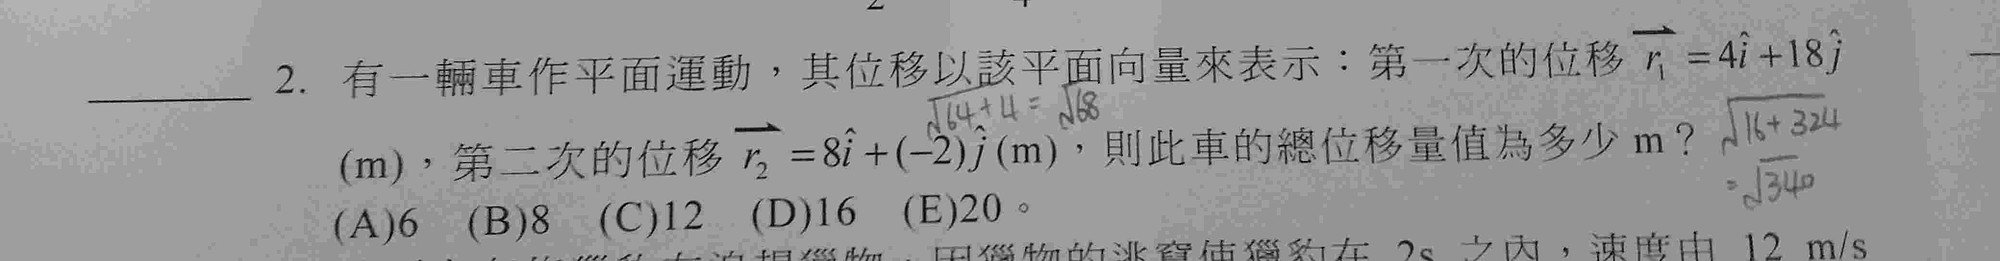 2. 有一輛車作平面運動，其位移以該平面向量來表示：第一次的位移 $\overrightarrow{r_1}=4\hat{i}+18\hat{j}$
√64+4 = √68
(m)，第二次的位移 $\overrightarrow{r_2}=8\hat{i}+(-2)\hat{j}$ (m)，則此車的總位移量值為多少 m？
√16+324
=√340
(A)6 (B)8 (C)12 (D)16 (E)20。
2s 之內，速度由 12 m/s